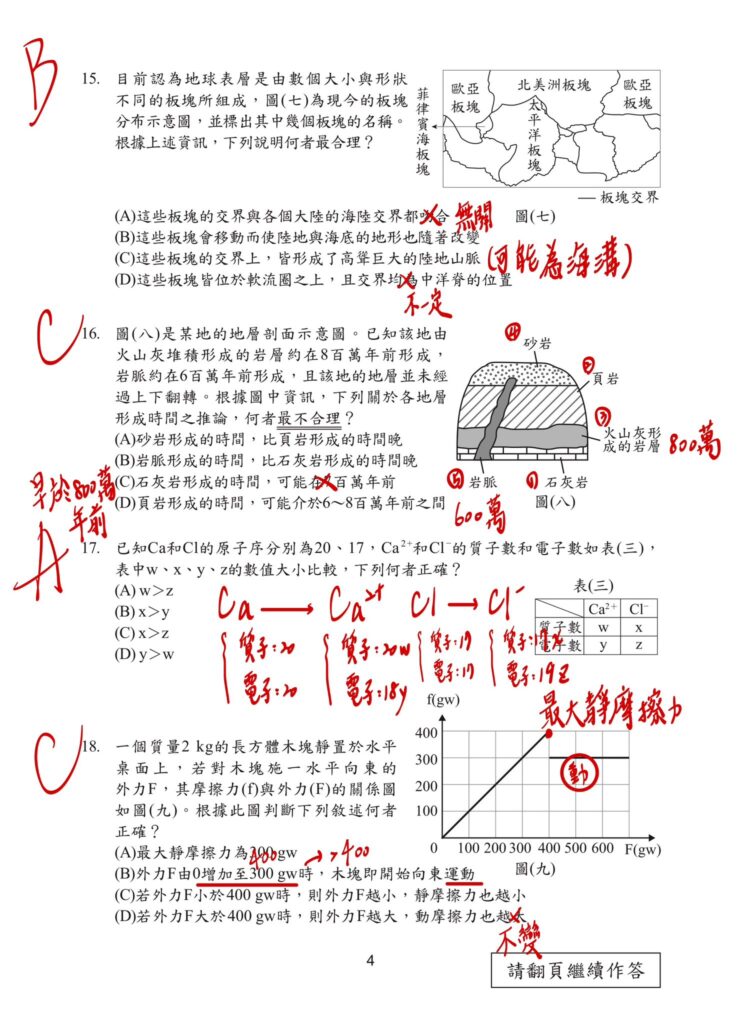 B
15. 目前認為地球表層是由數個大小與形狀
不同的板塊所組成，圖(七)為現今的板塊
分布示意圖，並標出其中幾個板塊的名稱。
根據上述資訊，下列說明何者最合理？
菲律賓海板塊
歐亞板塊
北美洲板塊
太平洋板塊
歐亞板塊
板塊交界
圖(七)
(A)這些板塊的交界與各個大陸的海陸交界都吻合 無關
(B)這些板塊會移動而使陸地與海底的地形也隨著改變
(C)這些板塊的交界上，皆形成了高聳巨大的陸地山脈 (可能為海溝)
(D)這些板塊皆位於軟流圈之上，且交界均為中洋脊的位置
不一定
C
16. 圖(八)是某地的地層剖面示意圖。已知該地由
火山灰堆積形成的岩層約在8百萬年前形成，
岩脈約在6百萬年前形成，且該地的地層並未經
過上下翻轉。根據圖中資訊，下列關於各地層
形成時間之推論，何者最不合理？
(A)砂岩形成的時間，比頁岩形成的時間晚
(B)岩脈形成的時間，比石灰岩形成的時間晚
(C)石灰岩形成的時間，可能在7百萬年前
早於800萬年前
(D)頁岩形成的時間，可能介於6～8百萬年前之間
④
砂岩
頁岩
③
火山灰形
成的岩層 800萬
⑤ 岩脈
石灰岩
600萬
圖(八)
A
17. 已知Ca和Cl的原子序分別為20、17，Ca²⁺和Cl⁻的質子數和電子數如表(三)，
表中w、x、y、z的數值大小比較，下列何者正確？
(A) w＞z
(B) x＞y
(C) x＞z
(D) y＞w
表(三)
Ca²⁺ Cl⁻
質子數 w x
電子數 y z
Ca → Ca²⁺ Cl → Cl⁻
質子:20 質子:20w
電子:20 電子:18y 電子:17
C
18. 一個質量2 kg的長方體木塊靜置於水平
桌面上，若對木塊施一水平向東的
外力F，其摩擦力(f)與外力(F)的關係圖
如圖(九)。根據此圖判斷下列敘述何者
正確？
f(gw)
最大靜摩擦力
400
300
200
100
0 100 200 300 400 500 600 F(gw)
動
圖(九)
(A)最大靜摩擦力為300 gw
400 → >400
(B)外力F由0增加至300 gw時，木塊即開始向東運動
(C)若外力F小於400 gw時，則外力F越小，靜摩擦力也越小
(D)若外力F大於400 gw時，則外力F越大，動摩擦力也越大
不變
4
請翻頁繼續作答